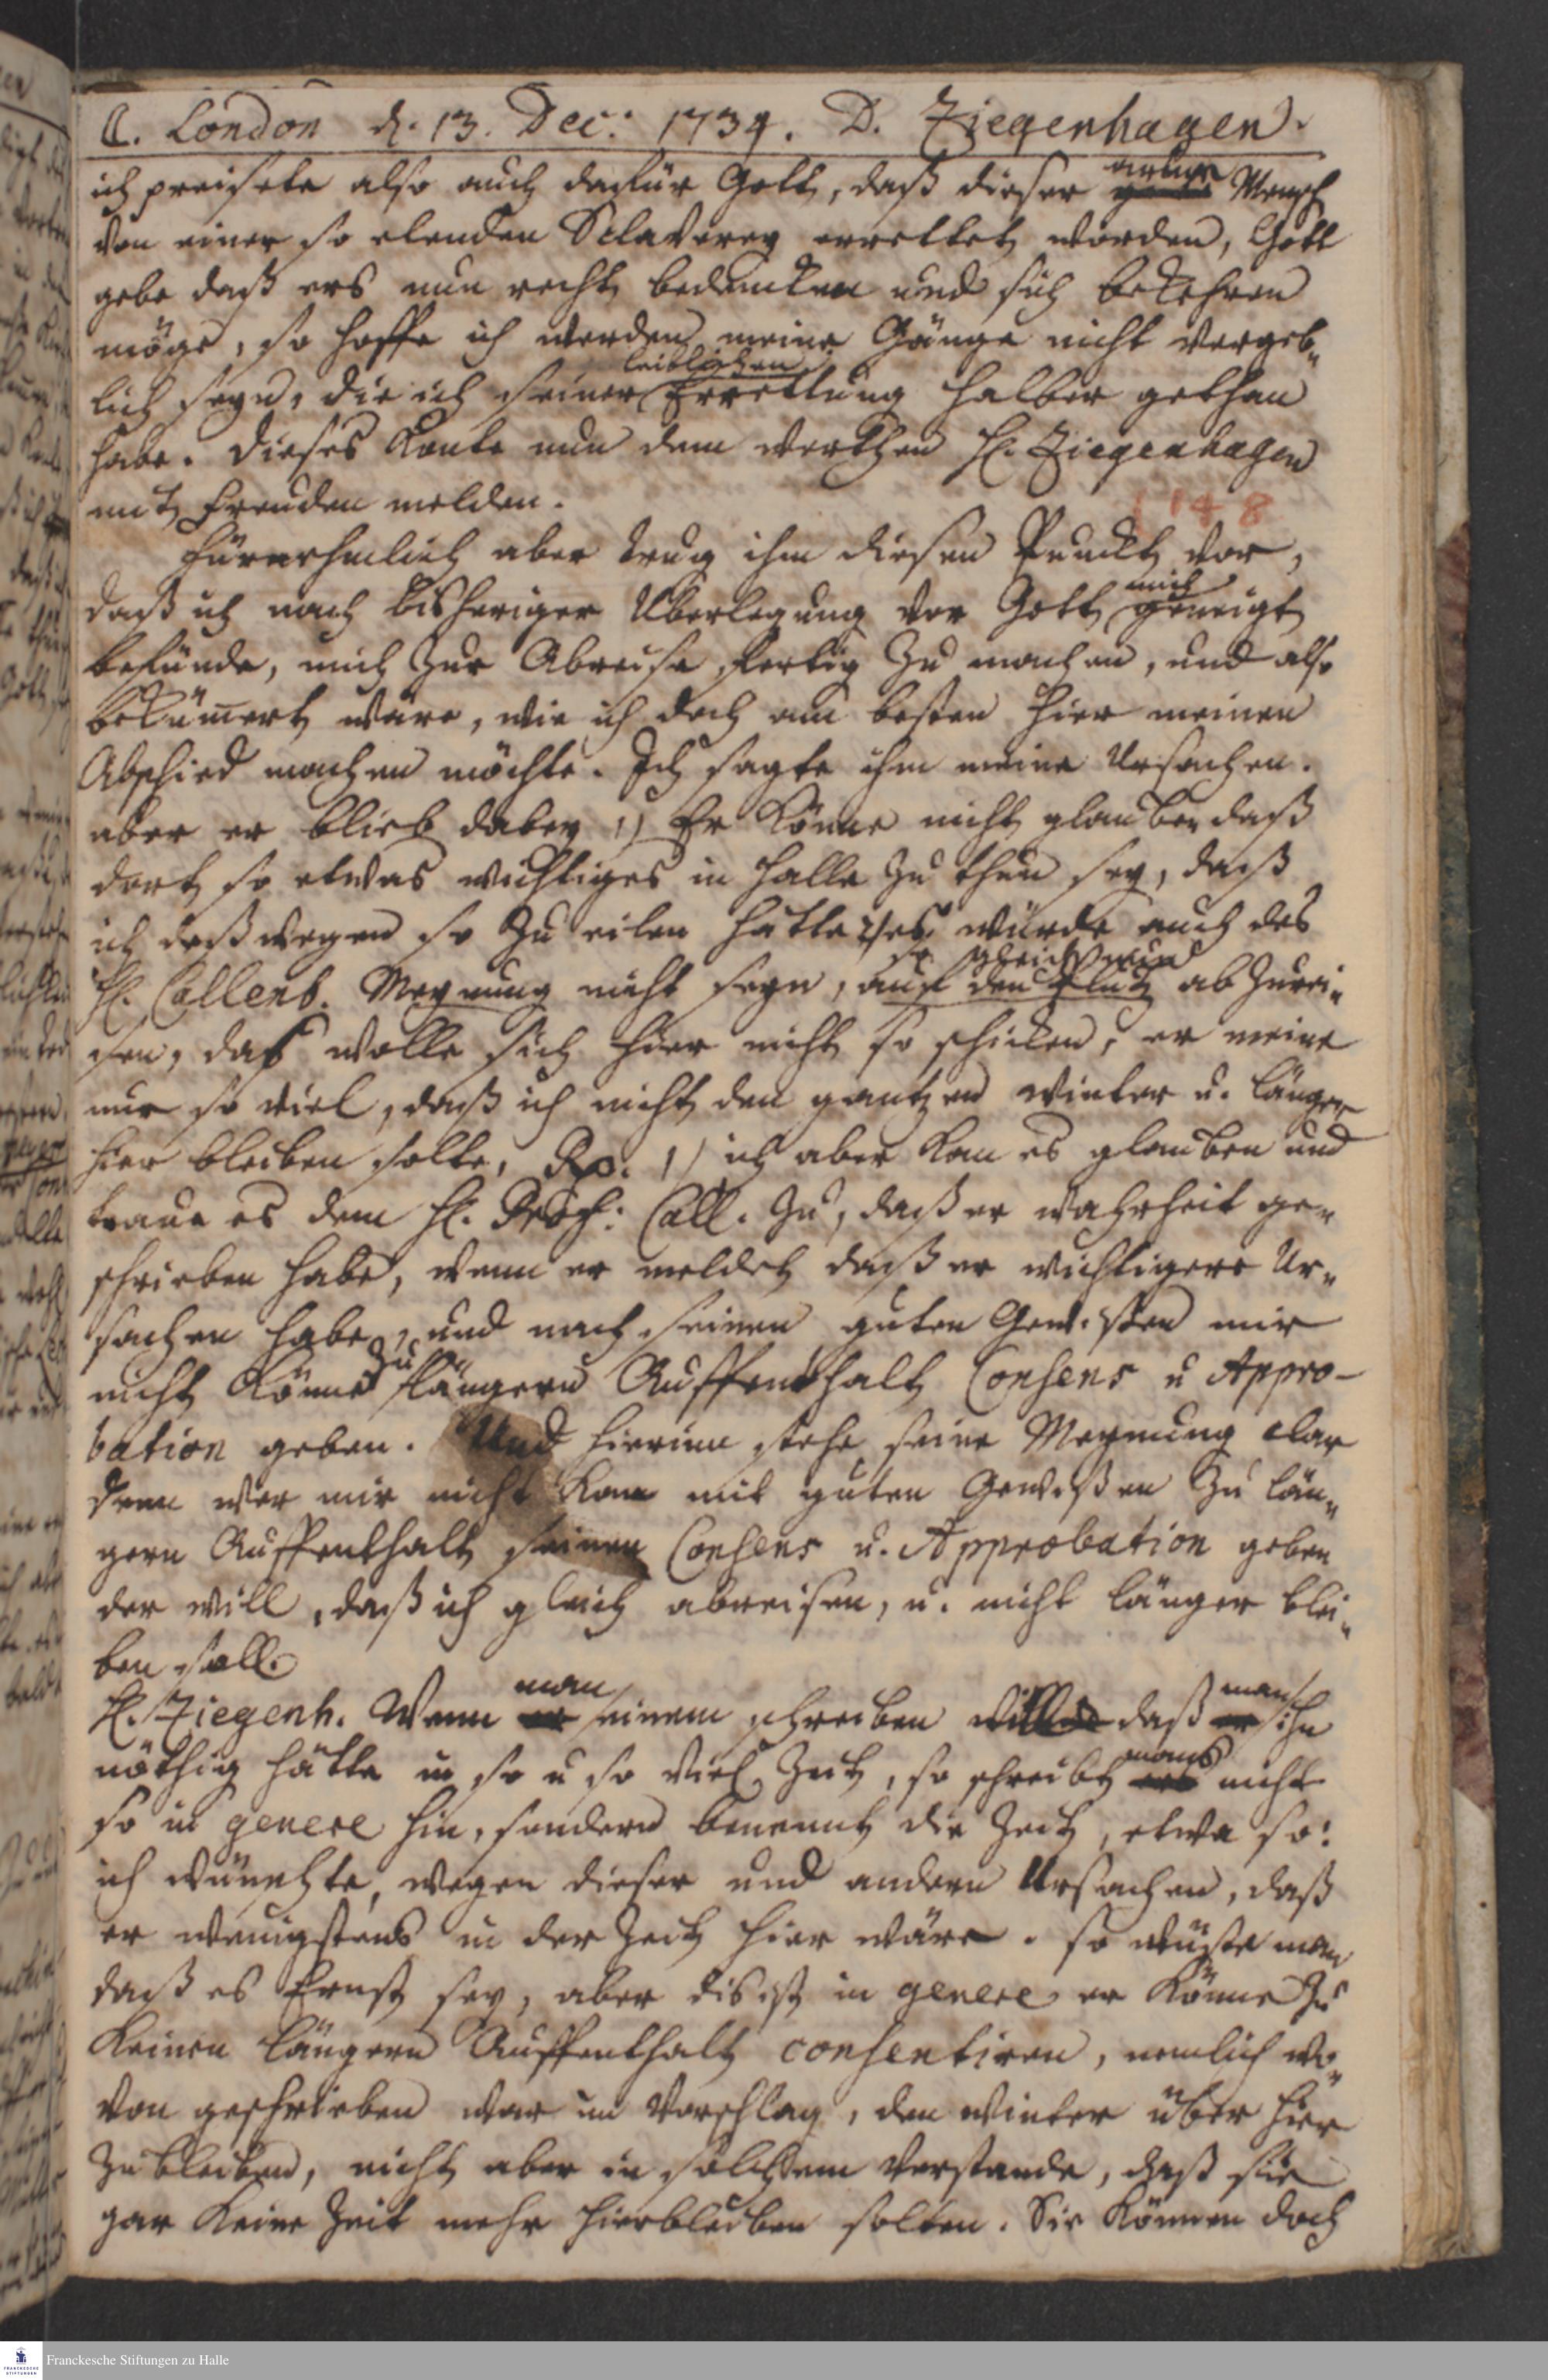 C. London d. 13. Dec: 1734. D. Ziegenhagen.
ich preisete also auch dafür Gott, daß dieser Mensch
von einer so elenden Sclaverey errettet worden, Gott
gebe daß ers nun recht bedencken und sich bekehren
möge, so hoffe ich werden meine Gänge nicht vergeb-
lich seyn, die ich seiner leiblichen Errettung halber gethan
habe. Dieses konte nun dem werthen H. Ziegenhagen
mit Freuden melden.
1148
Fürnehmlich aber trug ihm diesen Punckt vor,
daß ich nach bisheriger Uberlegung vor Gott mich geneigt
befünde, mich zur Abreise fertig zu machen, und also
bekümert wäre, wie ich doch am besten hier meinen
Abschied machen möchte. Ich sagte ihm meine Ursachen.
aber er blieb dabey 1) Er könne nicht glauben daß
dort so etwas wichtiges in Halle zu thun sey, daß
ich deßwegen so zu eilen hätte 2) es würde auch des
H. Callenb. Meynung nicht seyn, so gleich nun auf den Plutz abzurei-
sen, das wolle sich hier nicht so schicken, er meine
nur so viel, daß ich nicht den gantzen Winter u. länger
hier bleiben solte, Rx. 1) ich aber kan es glauben und
traue es dem H. Prof: Call. zu, daß er Wahrheit ge-
schrieben habe, wenn er meldet daß er wichtigere Ur-
sachen habe, und nach seinen guten Gewissen mir
nicht könne zu längern Auffenthalt Consens u Appro-
bation geben. Und hierinn stehe seine Meynung clar
denn wer mir nicht kan mit guten Gewißen zu län-
gern Auffenthalt seinen Consens u. Approbation geben
der will, daß ich gleich abreisen, u. nicht länger blei-
ben soll.
H. Ziegenh. Wenn man einem schreiben will daß man ihn
nöthig hätte in so u so viel Zeit, so schreibt mans nicht
so in genere hin, sondern benennt die Zeit, etwa so:
ich wünschte, wegen dieser und andern Ursachen, daß
er wenigstens in der Zeit hier wäre. so wüste man
daß es Ernst sey, aber dis ist in genere er könne zu
keinen längern Auffenthalt consentiren, nemlich wo-
von geschrieben war im Vorschlag, den Winter über hier
zu bleiben, nicht aber in solchem Verstande, daß sie
gar keine Zeit mehr hierbleiben solten. Sie können doch
FRANCKESCHE STIFTUNGEN
Franckesche Stiftungen zu Halle